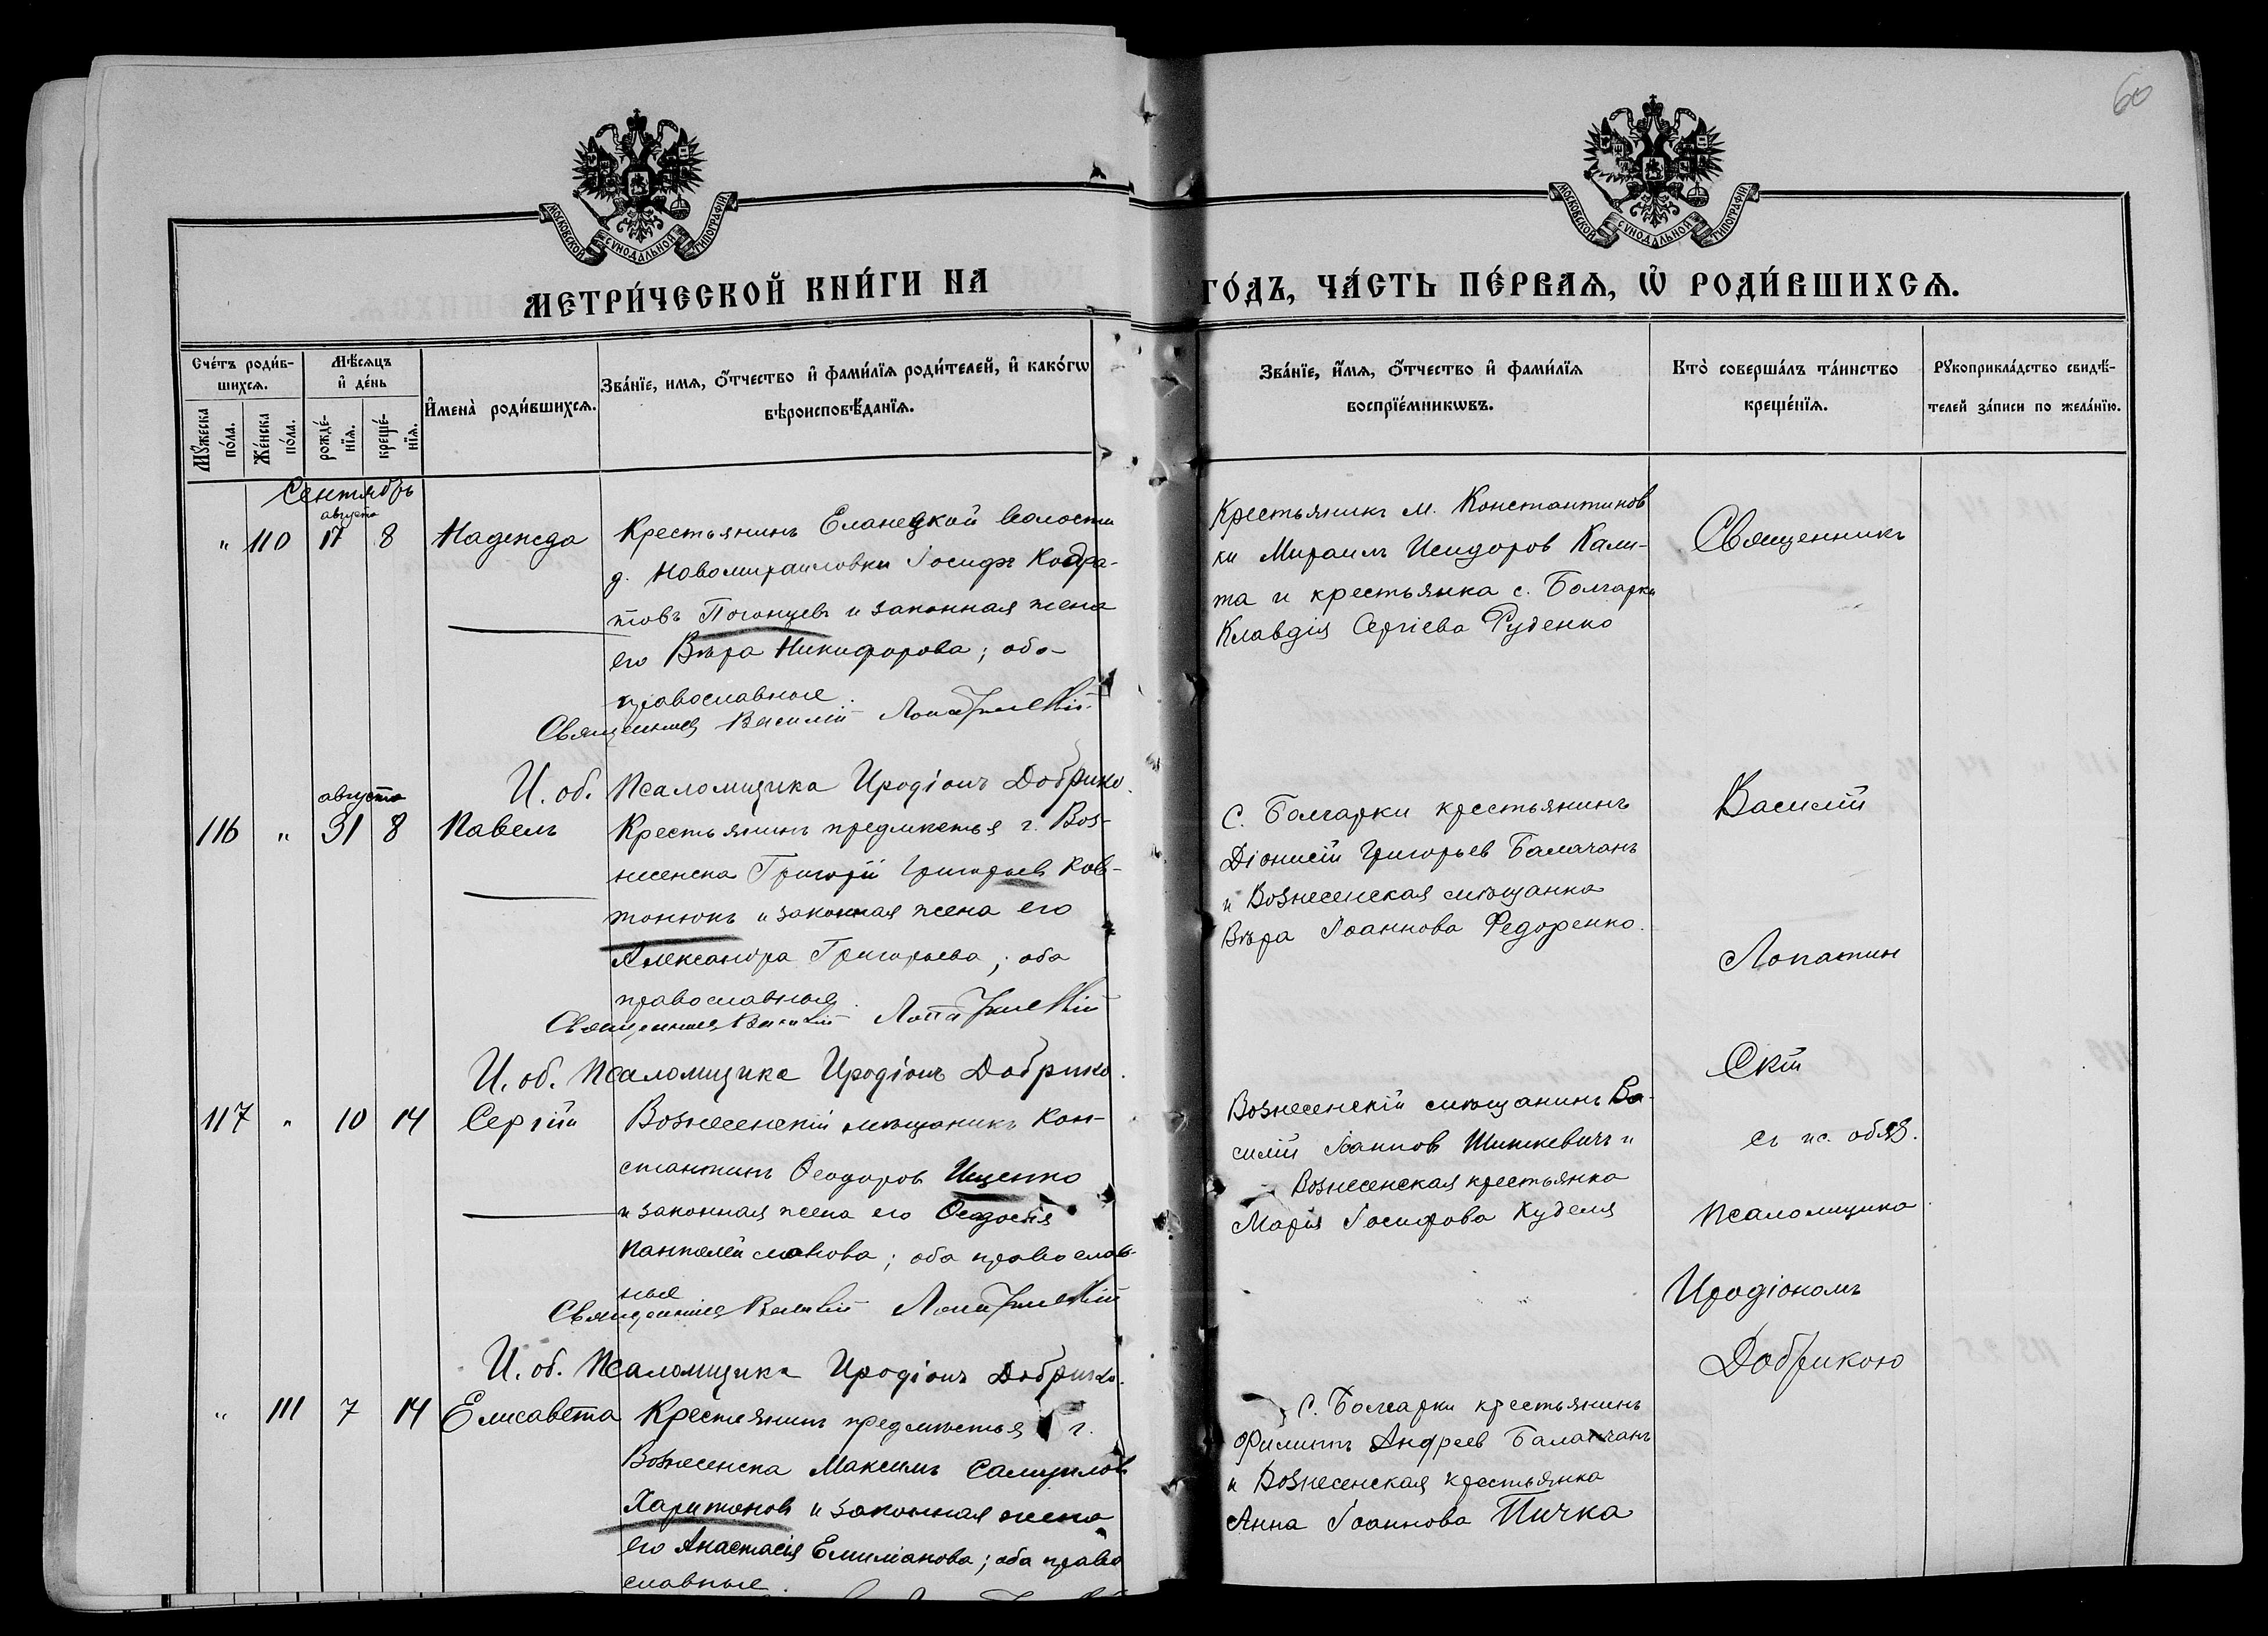 60
МОСКОВСКОЙ СѴНОДАЛЬНОЙ ТИПОГРАФІИ
МОСКОВСКОЙ СѴНОДАЛЬНОЙ ТИПОГРАФІИ
МЕТРИ́ЧЕСКОЙ КНИ́ГИ НА
ГО́ДЪ, ЧА́СТЬ ПЕ́РВАѦ, Ѽ РОДИ́ВШИХСѦ.
Сче́тъ роди́в-
шихсѧ.
Мꙋ́жеска по́ла.
Же́нска по́ла.
Мѣ́сѧцъ
и҆ де́нь
рожде́-
нїѧ.
креще́-
нїѧ.
И҆мена̀ роди́вшихсѧ.
Зва́нїе, имѧ, ѻ҆́тчество и҆ фами́лїѧ роди́телей, и҆ како́гѡ
вѣроисповѣ́данїѧ.
Зва́нїе, и҆́мѧ, ѻ҆́тчество и҆ фами́лїѧ
воспрїе́мникѡвъ.
Кто̀ соверша́лъ та́инство
креще́нїѧ.
Рꙋкоприкла́дство свидѣ́-
телей за́писи по жела́нїю.
Сентябрь
августа
" 110 17 8 Надежда
Крестьянинъ Еланецкой волости
д. Новомихаиловки Іосифъ Кодра-
товъ Погонцевъ и законная жена
его Вѣра Никифорова; оба
православные.
Священникъ Василій Лопатинскій
И. об. Псаломщика Иродіонъ Добрико.
Крестьянинъ м. Константинов
ки Михаилъ Исидоров Кали-
та и крестьянка с. Болгарки
Клавдія Сергіева Руденко
Священникъ
августа
116 " 31 8 Павелъ
Крестьянинъ предмѣстья г. Воз-
несенска Григорій Григорьев Ков-
тонюкъ и законная жена его
Александра Григорьева; оба
православные.
Священникъ Василій Лопатинскій
И. об. Псаломщика Иродіонъ Добрико.
С. Болгарки крестьянинъ
Діонисій Григорьев Балачанъ
и Вознесенская мѣщанка
Вѣра Іоаннова Федоренко.
Василій
Лопатин
Скій
117 " 10 14 Сергій
Вознесенскій мѣщанинъ Кон-
стантинъ Ѳеодоров Ищенко
и законная жена его Ѳеодосія
Пантелеймонова; оба православ-
ные
Священникъ Василій Лопатинскій
И. об. Псаломщика Иродіонъ Добрико.
Вознесенскій мѣщанинъ Ва-
силій Іоаннов Шишкевичъ и
Вознесенская крестьянка
Марія Іосифова Куделя
съ ис. обяз.
Псаломщика
Иродіономъ
Добрикою
" 111 7 14 Елисавета
Крестьянинъ предмѣстья г.
Вознесенска Максимъ Самуилов
Харитонов и законная жена
его Анастасія Емиліанова; оба право
славные.
С. Болгарки крестьянинъ
Филиппъ Андреев Балачанъ
и Вознесенская крестьянка
Анна Іоаннова Пичка